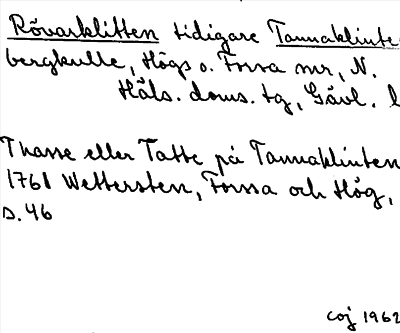 Rövarklitten tidigare Tannaklinte
bergkulle, Högs o. Forsa snr, N.
Häls. doms. tg, Gävl. l
Thasse eller Tatte på Tannaklinten
1761 Wettersten, Forssa och Hög,
s. 46
coj 1962